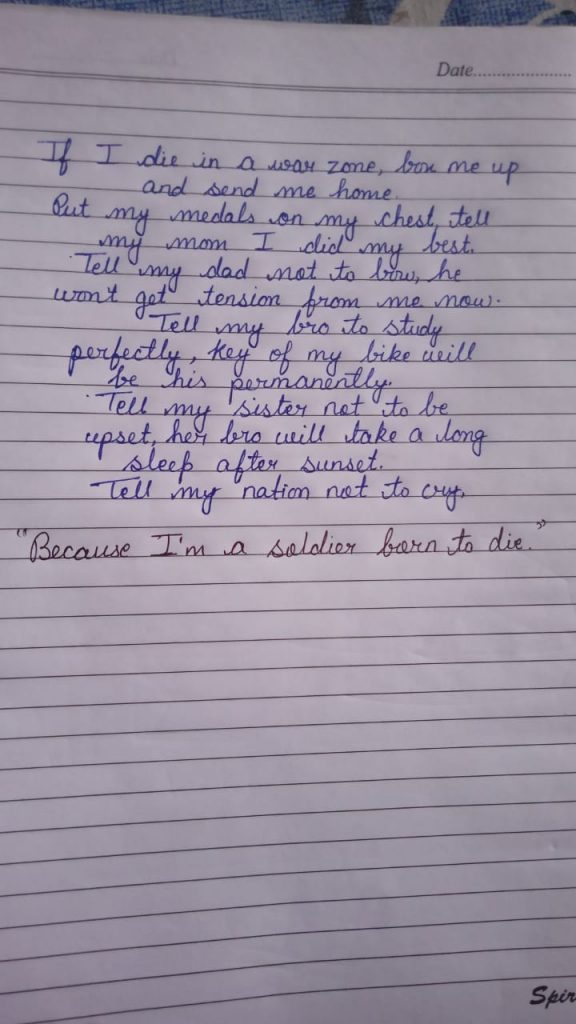 Date......................
If I die in a war zone, box me up
and send me home.
Put my medals on my chest, tell
my mom I did my best.
Tell my dad not to bow, he
won't get tension from me now.
Tell my bro to study
perfectly, key of my bike will
be his permanently.
Tell my sister not to be
upset, her bro will take a long
sleep after sunset.
Tell my nation not to cry,
"Because I'm a soldier born to die."
Spir